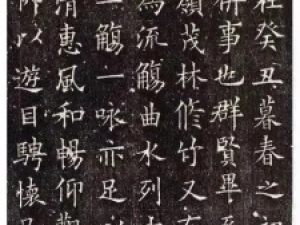 在癸丑暮春之初
禊事也群賢畢至
嶺茂林修竹又有
為流觴曲水列
一觴一咏亦足以
清惠風和暢仰觀
所以遊目騁懷足